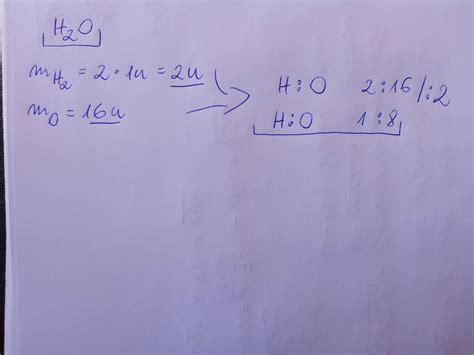 H₂O
m_H₂ = 2 · 1u = 2u
m_O = 16u
H:O 2:16 /:2
H:O 1:8